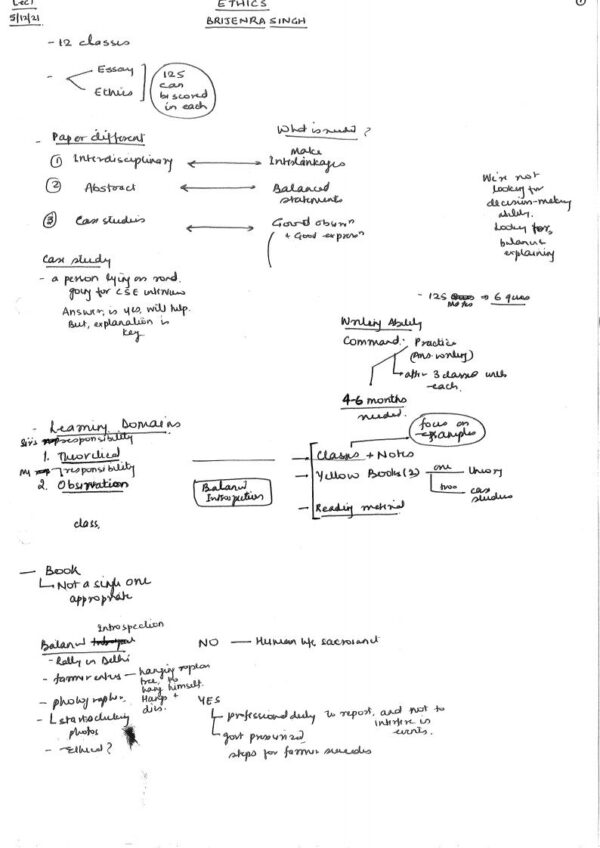 Lec 1
5/12/21
ETHICS
BRIJENRA SINGH
①
- 12 classes
- Essay
Ethics
125
can
be scored
in each
- Paper different
What is need?
① Interdisciplinary
Make
Interlinkages
② Abstract
Balanced
statements
③ Case studies
Good obsvn
+ Good expresn
We're not
looking for
decision-making
ability.
Looking for
balance
explaining
Case study
- a person lying on road.
going for CSE interview
Answer, is yes, will help.
But, explanation is
key
- 125 → 6 ques
Writing Ability
Command: Practice
(Ans writing)
after 3 classes with
each.
4-6 months
needed.
- Learning Domains
Sir's responsibility
1. Theoretical
My responsibility
2. Observation
Balanced
Introspection
focus on
examples
Classes + Notes
- Yellow Books (2) one theory
two case
studies
- Reading material
class,
- Book
Not a single one
appropriate
Introspection
Balanced
- Rally in Delhi
- farmer enters - hanging rope on
tree, to
hang himself.
Hangs +
dies.
- photographer
- starts clicking
photos
- Ethical?
NO - Human life sacrosanct
YES
professional duty to report, and not to
interfere in
events.
govt pressurized
steps for farmer suicides